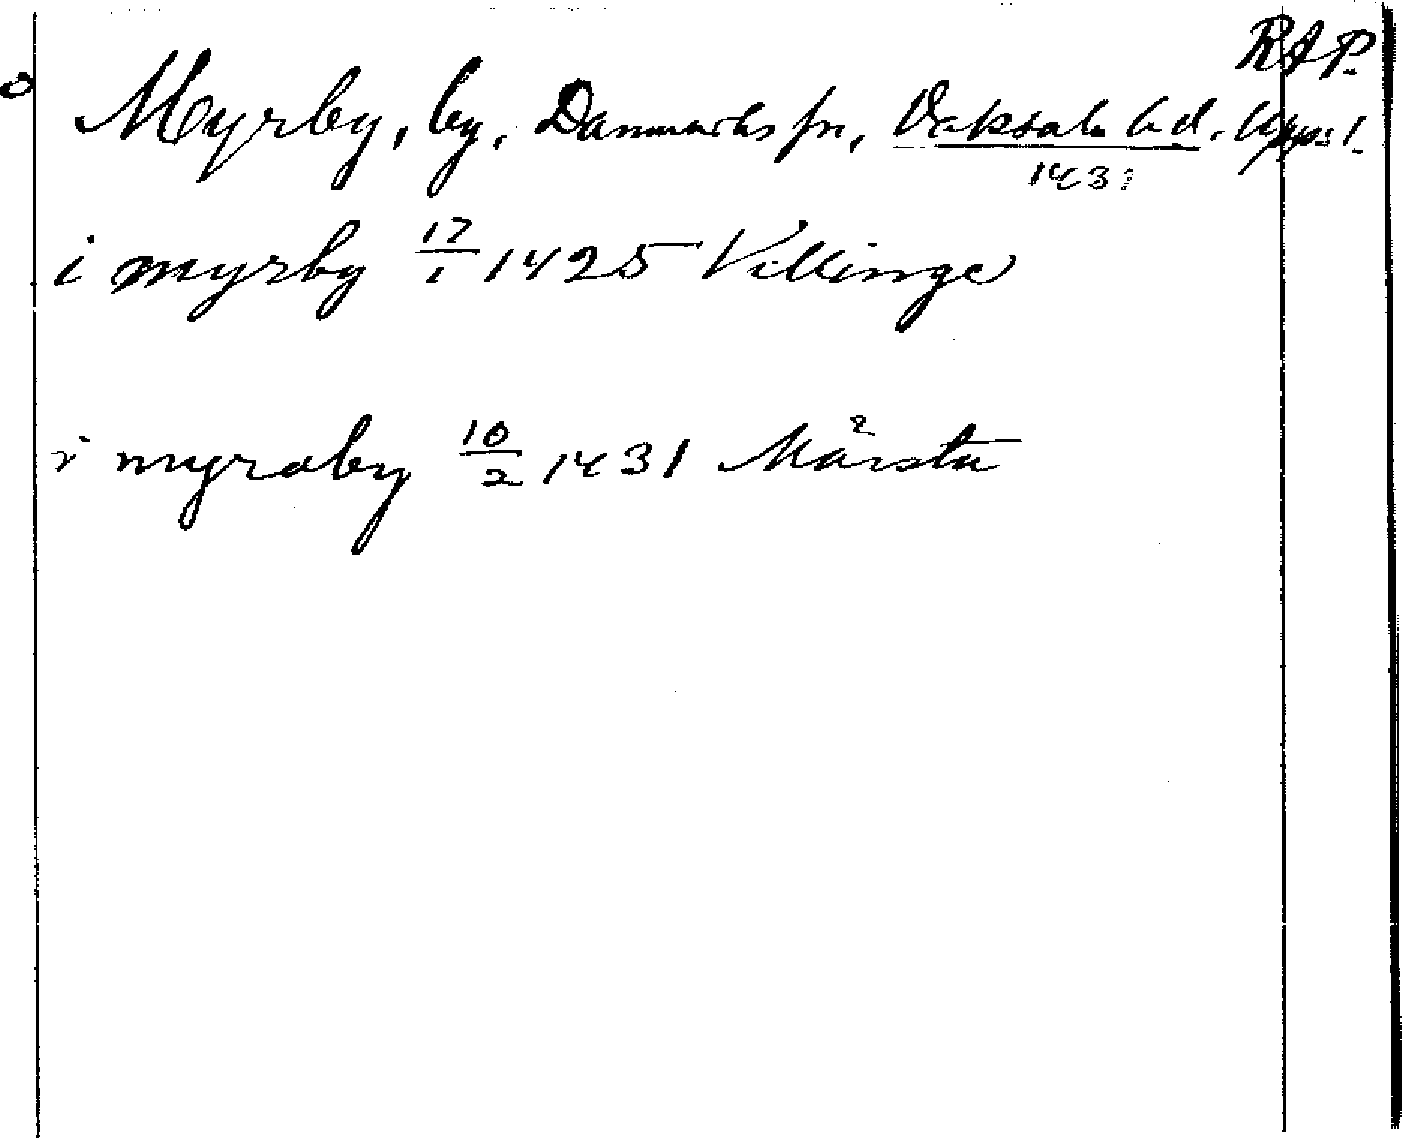 RAP.
Myrby, by, Danmarks sn, Vaksala hd. Upps. l.
1431
i myrby 17/1 1425 Villinge
i myraby 10/2 1431 Mårsta